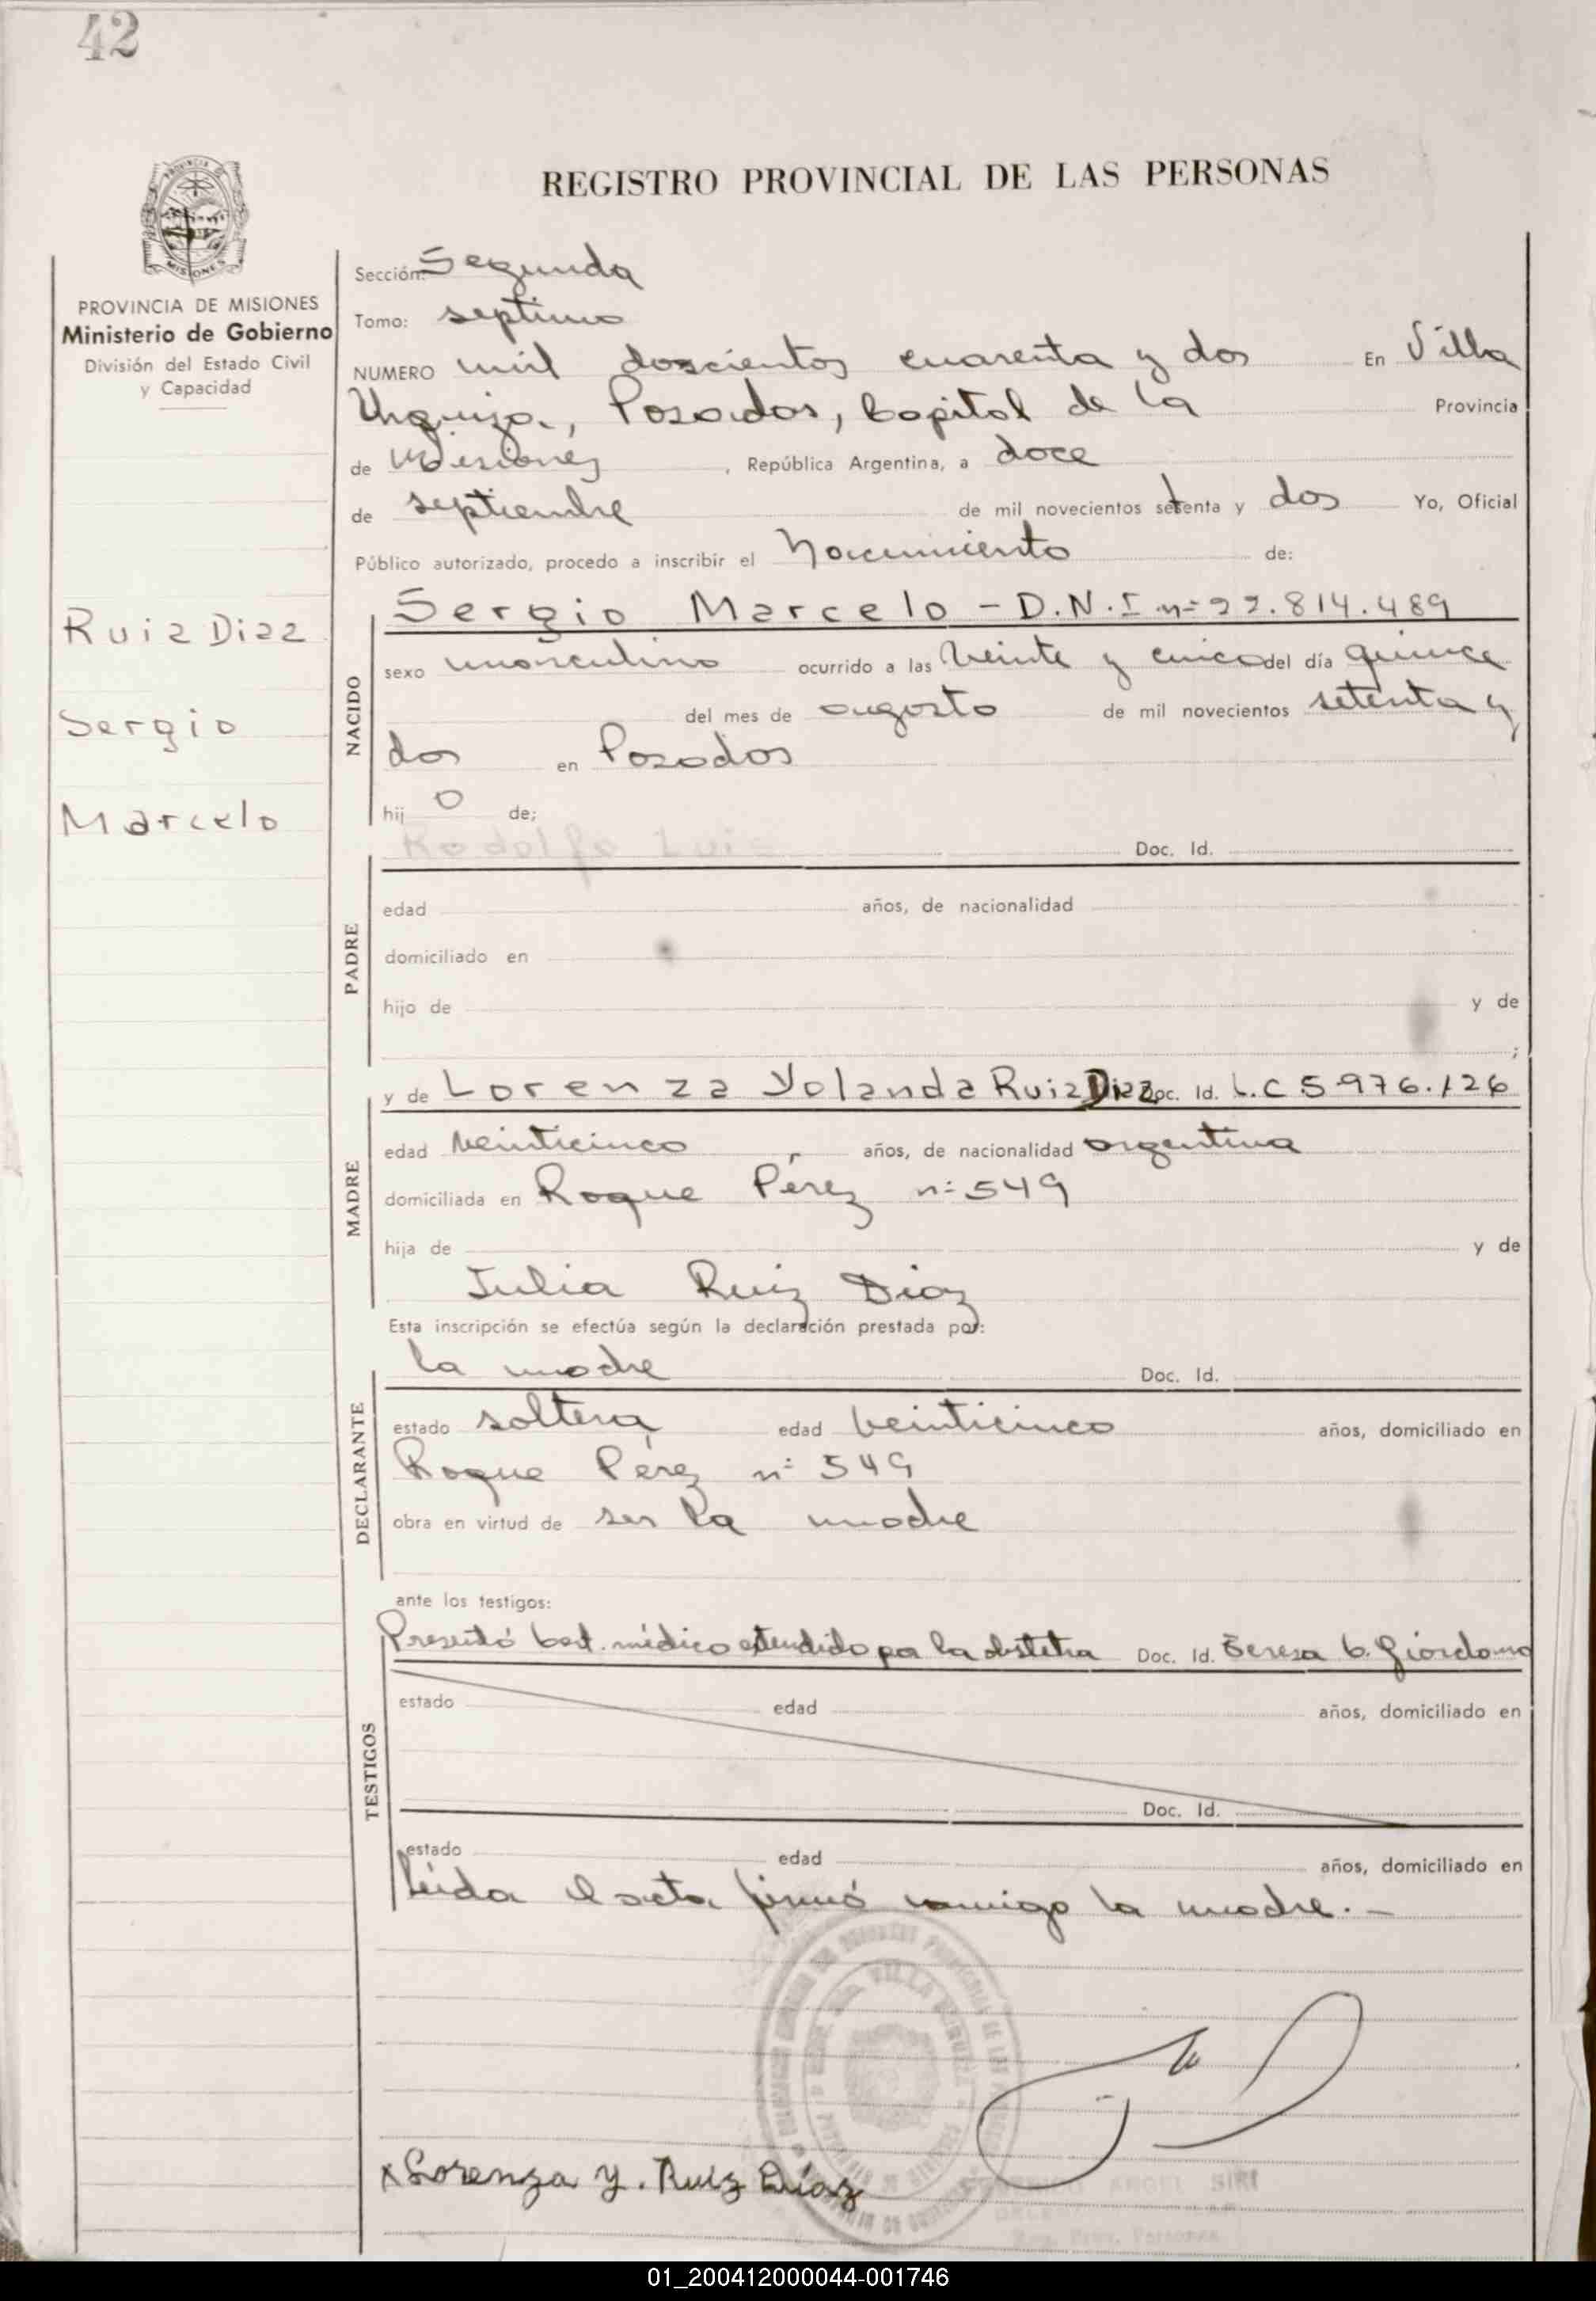 42
REGISTRO PROVINCIAL DE LAS PERSONAS
PROVINCIA DE MISIONES
Ministerio de Gobierno
División del Estado Civil
y Capacidad
Sección: Segunda
Tomo: septimo
NUMERO mil doscientos cuarenta y dos En Villa
Urquiza, Posadas, Capital de la Provincia
de Misiones, República Argentina, a doce
de septiembre de mil novecientos setenta y dos Yo, Oficial
Público autorizado, procedo a inscribir el Nacimiento de:
Ruiz Diaz
Sergio
Marcelo
NACIDO
Sergio Marcelo - D.N.I nº 22.814.489
sexo masculino ocurrido a las veinte y cinco del día quince
del mes de agosto de mil novecientos setenta y
dos en Posadas
hij o de;
PADRE
Rodolfo Luis Doc. Id.
edad años, de nacionalidad
domiciliado en
hijo de y de
;
MADRE
y de Lorenza Yolanda Ruiz Diaz Doc. Id. L.C 5.976.126
edad veinticinco años, de nacionalidad argentina
domiciliada en Roque Pérez nº 549
hija de y de
Julia Ruiz Diaz
Esta inscripción se efectúa según la declaración prestada por:
DECLARANTE
la madre Doc. Id.
estado soltera edad veinticinco años, domiciliado en
Roque Pérez nº 549
obra en virtud de ser la madre
ante los testigos:
TESTIGOS
Presentó Cert. médico extendido por la obstetra Doc. Id. Teresa C. Giordano
estado edad años, domiciliado en
Doc. Id.
estado edad años, domiciliado en
Leída el acta firmó conmigo la madre. -
VILLA URQUIZA
x Lorenza Y. Ruiz Díaz
ANGEL SIRI
Reg. Prov. Personas
01_200412000044-001746